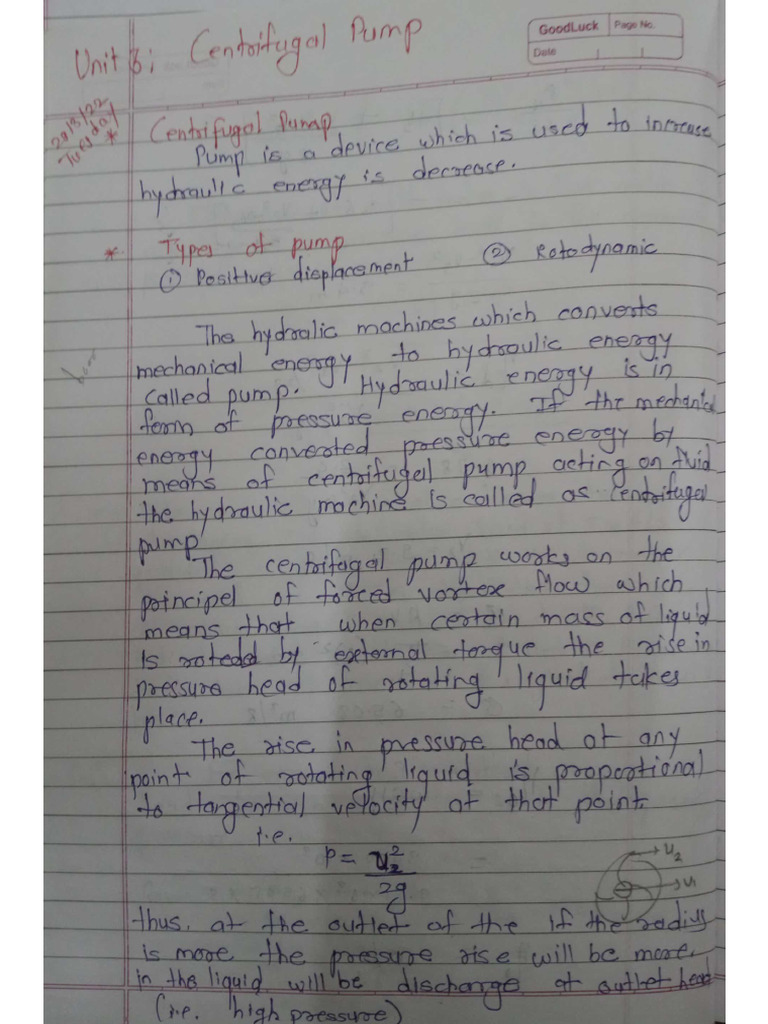 GoodLuck Page No.
Date
Unit 6: Centrifugal Pump
29/3/22
Tuesday
* Centrifugal Pump
Pump is a device which is used to increase
hydraulic energy is decrease.
* Types of pump
① Positive displacement ② Rotodynamic
The hydralic machines which converts
mechanical energy to hydraulic energy
called pump. Hydraulic energy is in
form of pressure energy. If the mechanical
energy converted pressure energy by
means of centrifugel pump acting on fluid
the hydraulic machine is called as Centrifugal
pump
The centrifugal pump works on the
principel of forced vortex flow which
means that when certain mass of liquid
is roteded by external torque the rise in
pressure head of rotating liquid takes
place.
The rise in pressure head at any
point of rotating liquid is proportional
to tangential velocity at that point
i.e.
P = U₂²
2g
U₂
U₁
thus, at the outlet of the If the radius
is more the pressure rise will be more.
in the liquid will be discharge at outlet head
(i.e. high pressure)